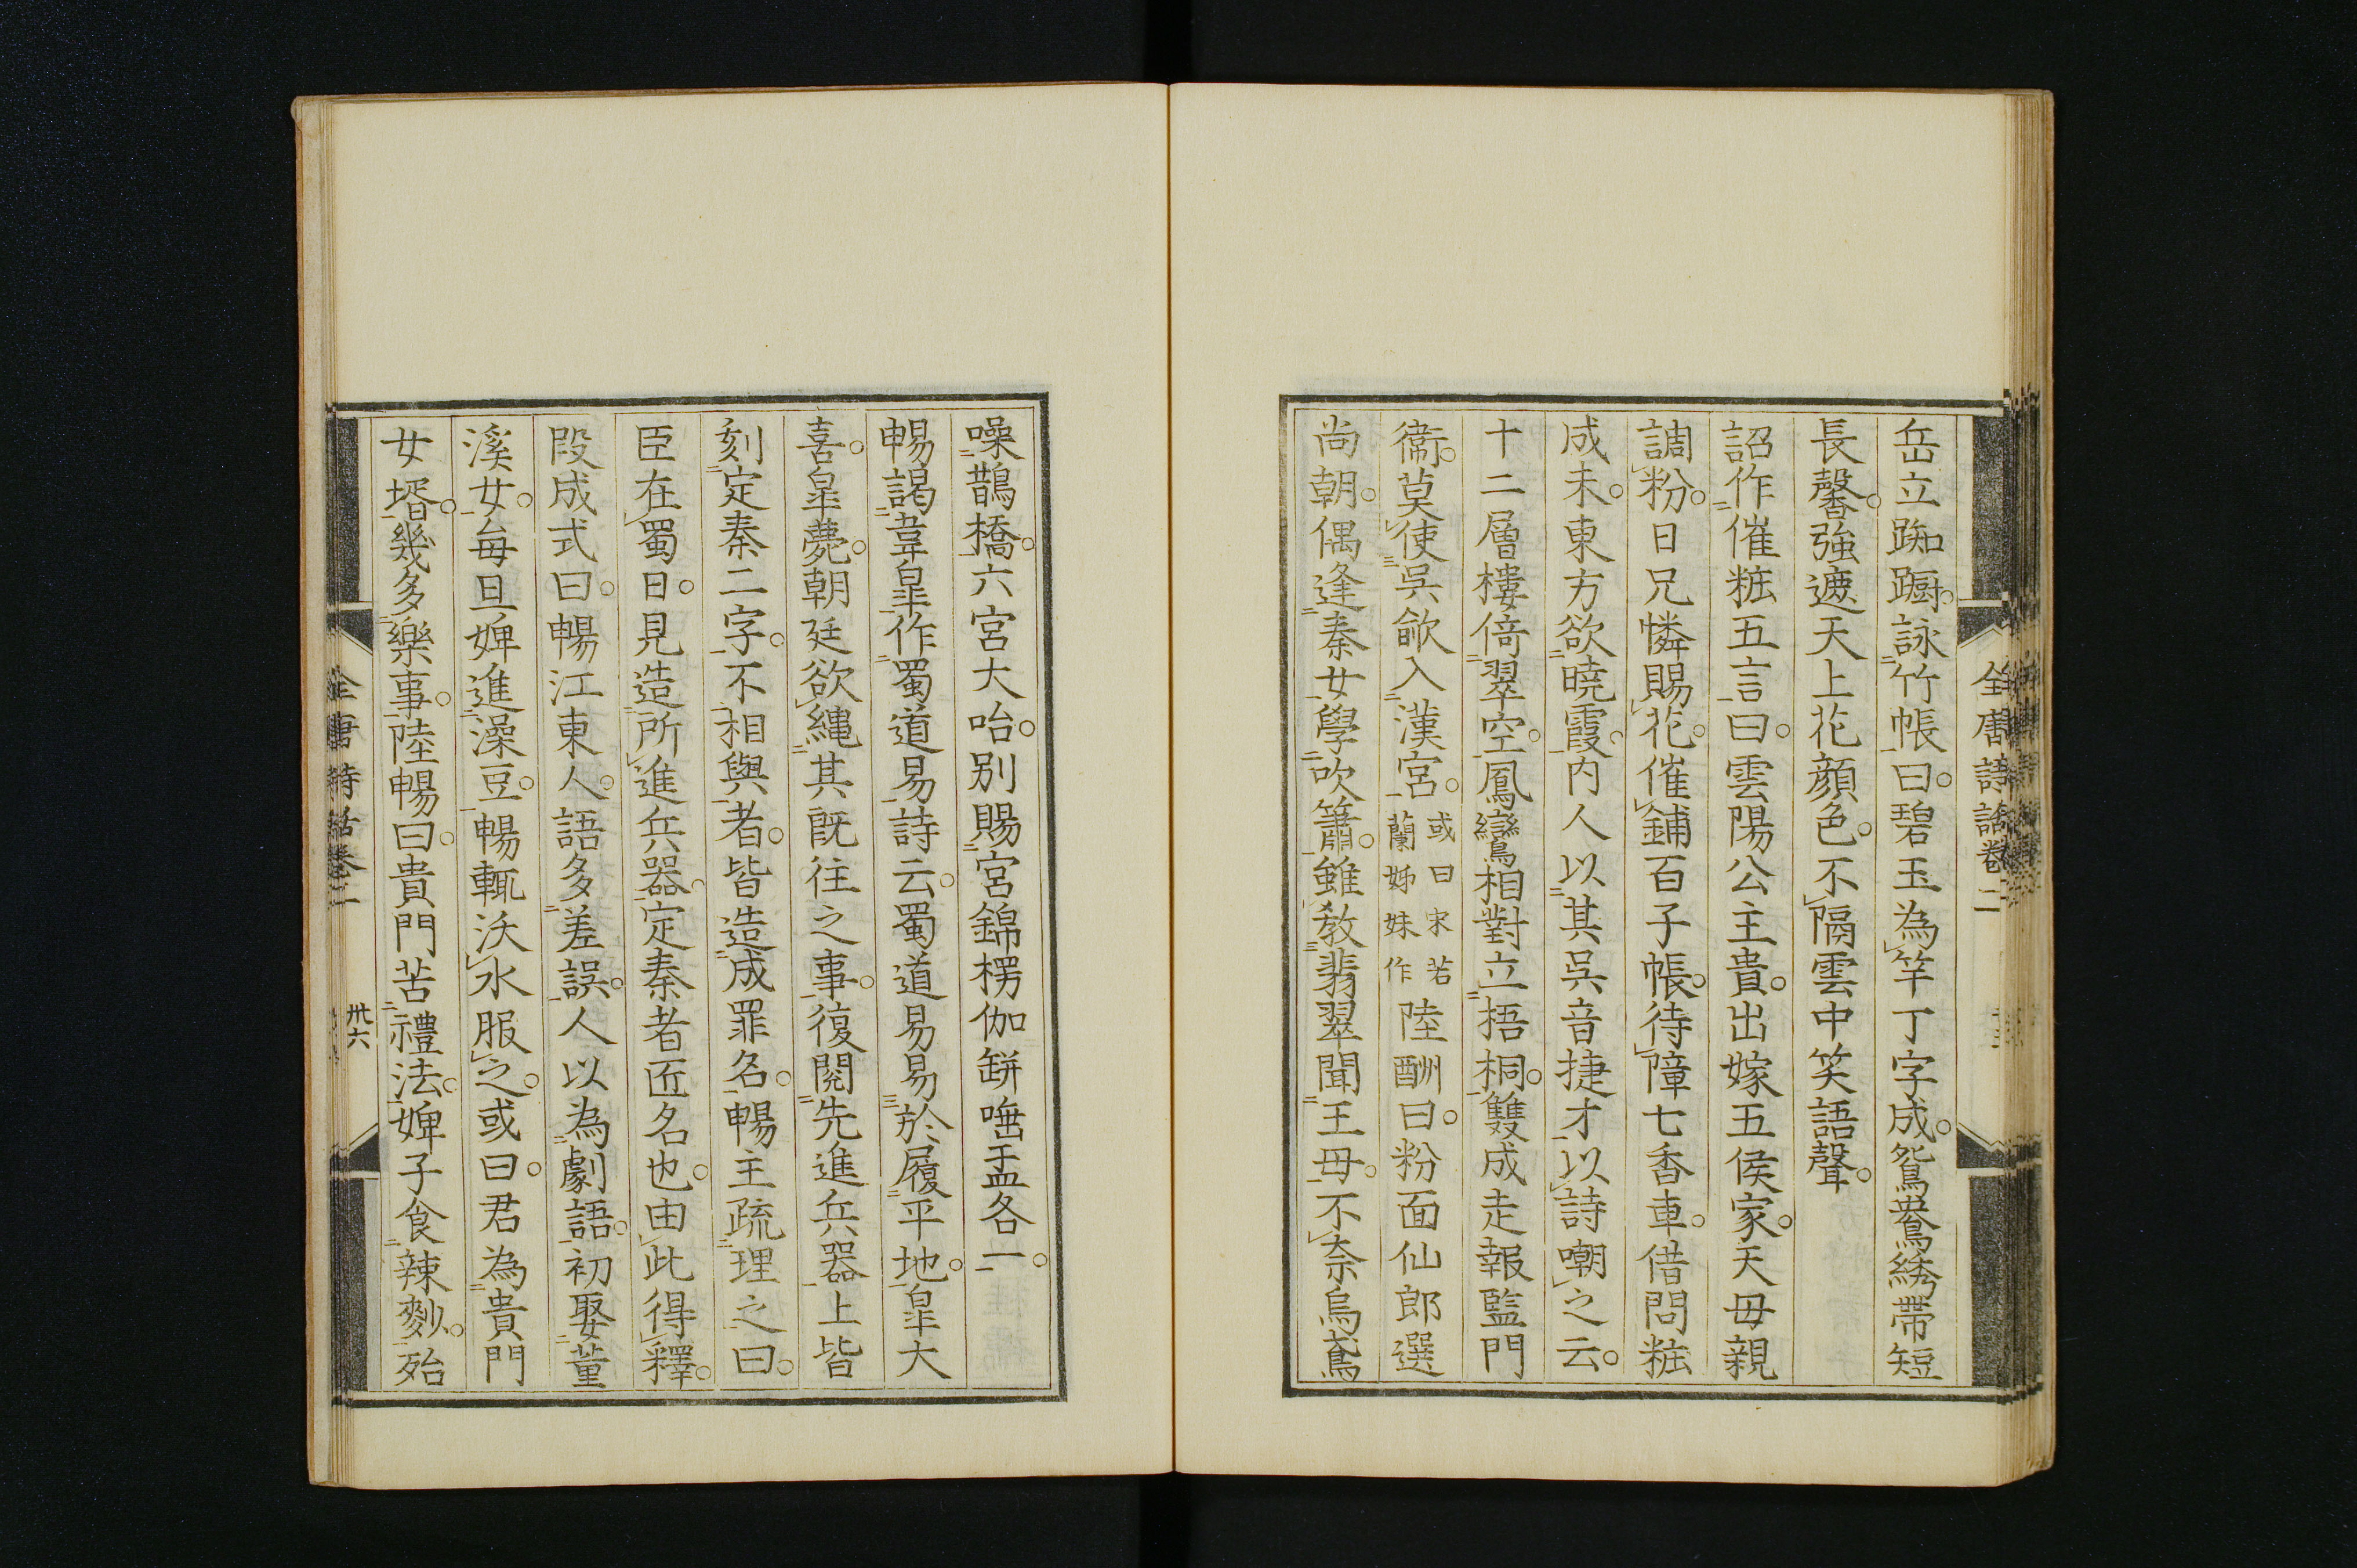 全唐詩話卷二
岳立踟蹰詠竹帳曰碧玉為竿丁字成鴛鴦綉帶短
長馨強遮天上花顔色不隔雲中笑語聲
詔作催粧五言曰雲陽公主貴出嫁五侯家天毋親
調粉日兄憐賜花催鋪百子帳待障七香車借問粧
成未東方欲曉霞内人以其呉音捷才以詩嘲之云
十二層樓倚翠空鳳鸞相對立梧桐雙成走報監門
衞莫使呉歈入漢宮或曰宋若蘭姊妹作陸酬曰粉面仙郎選
尚朝偶逢秦女學吹簫雖教翡翠聞王毋不奈烏鳶
噪鵲橋六宮大咍别賜宮錦楞伽缾唾盂各一
暢謁韋皐作蜀道易詩云蜀道易易於履平地皐大
喜皐薨朝廷欲繩其旣往之事復閱先進兵器上皆
刻定秦二字不相與者皆造成罪名暢主疏理之曰
臣在蜀日見造所進兵器定秦者匠名也由此得釋
段成式曰暢江東人語多差誤人以為劇語初娶董
溪女每旦婢進澡豆暢輒沃水服之或曰君為貴門
女壻幾多樂事陸暢曰貴門苦禮法婢子食辣麨殆
全唐詩話卷二
卅六